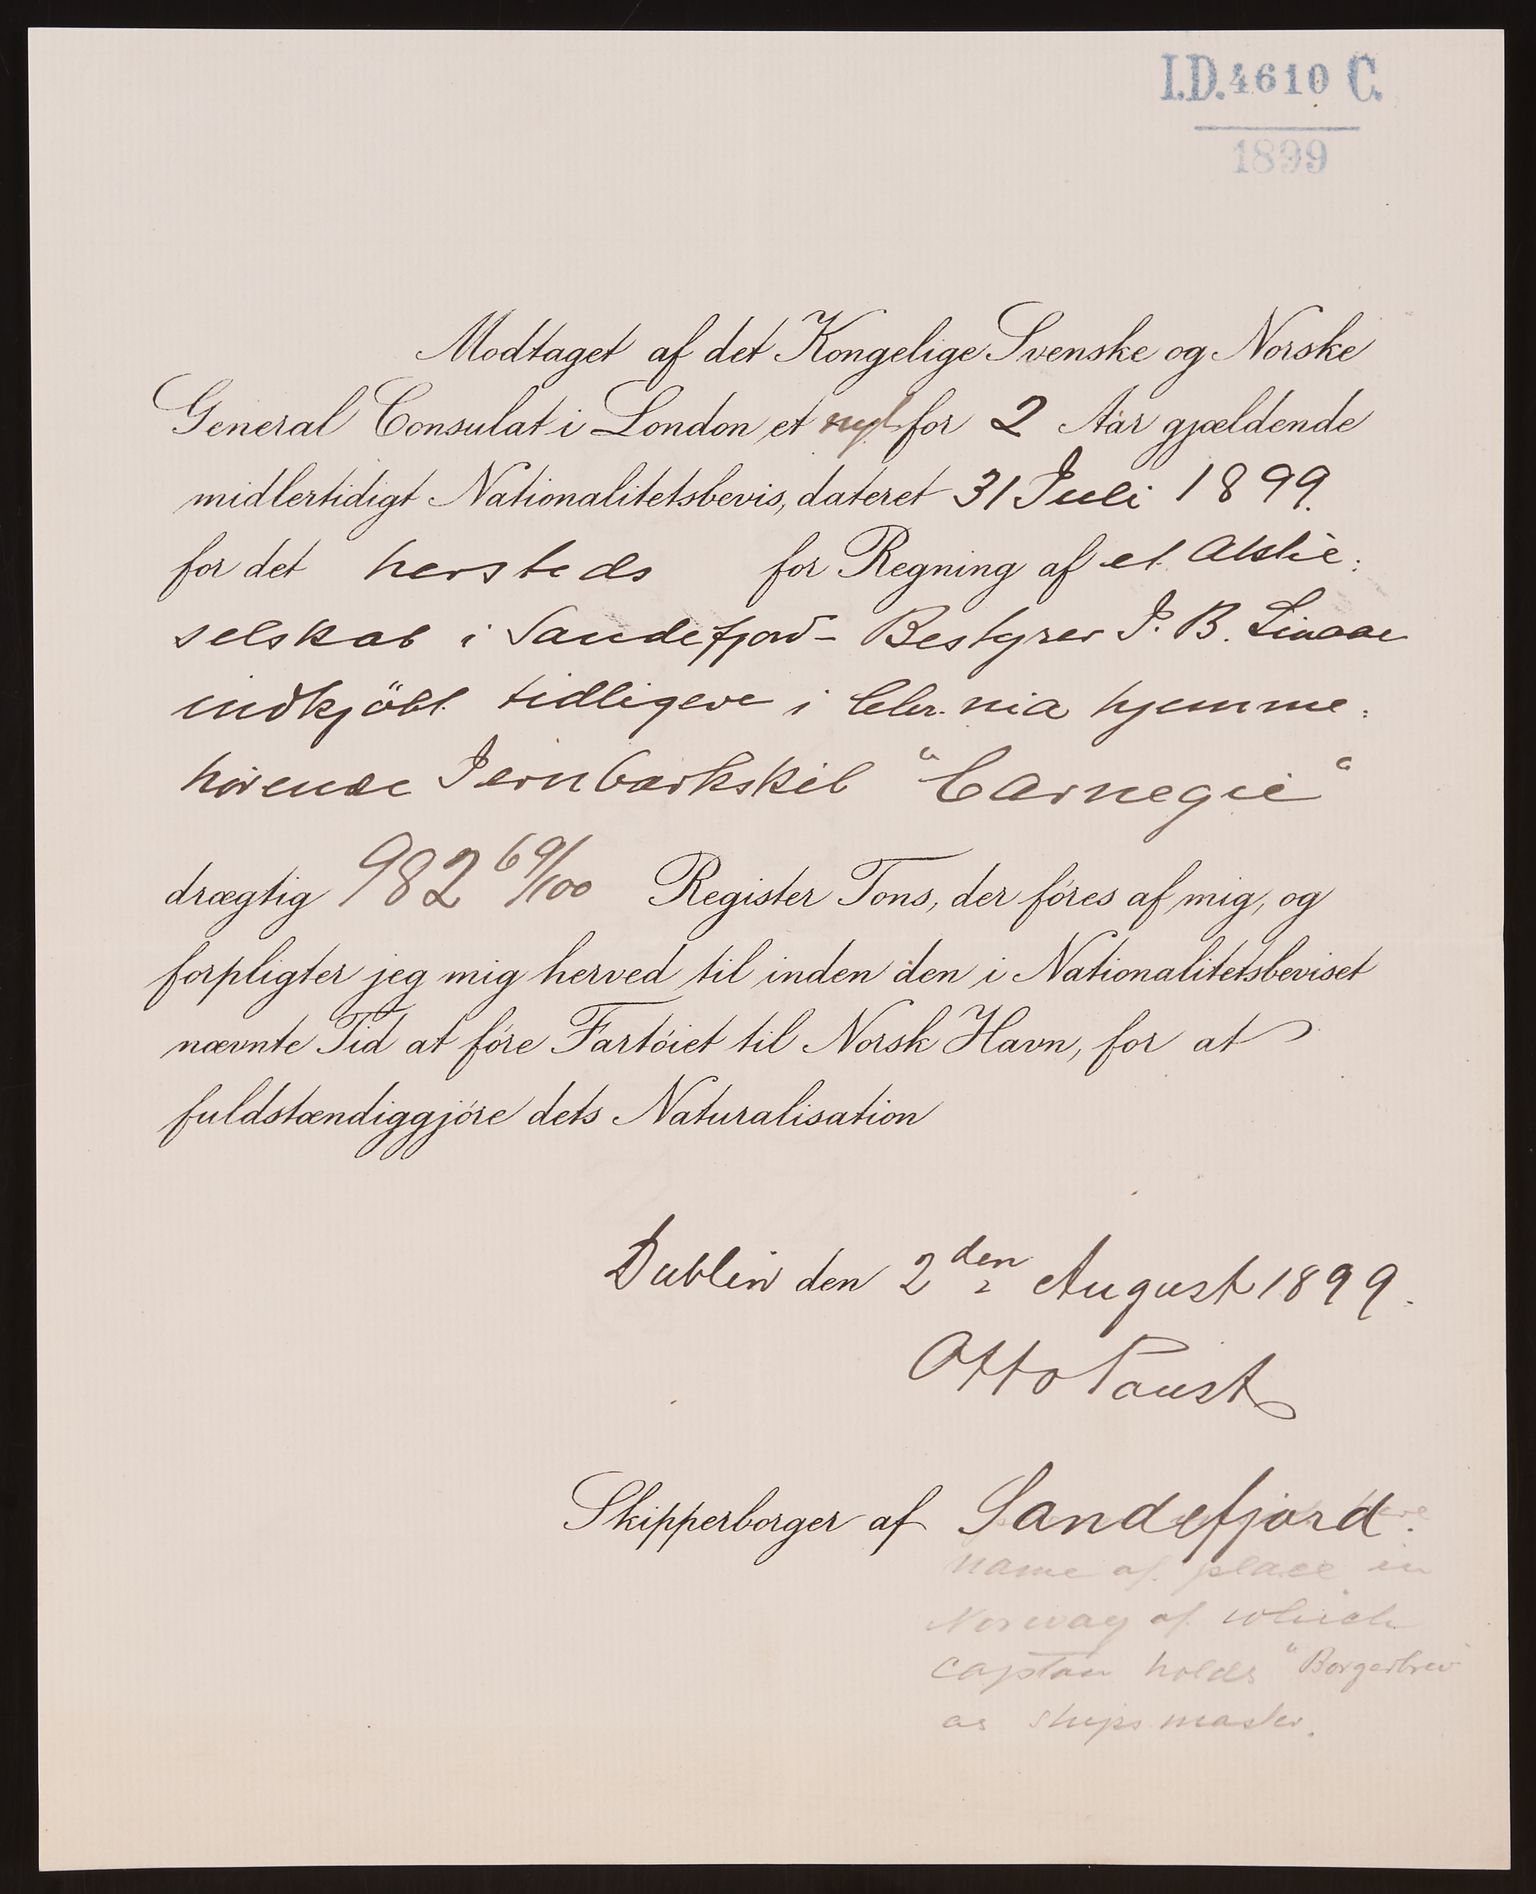 I.D. 4610 C.
1899
Modtaget af det Kongelige Svenske og Norske
General Consulat i London et nyt for 2 Aar gjældende
midlertidigt Nationalitetsbevis, dateret 31 Juli 1899.
for det hersteds for Regning af et Aktie:
selskab i Sandefjord - Bestyrer J. B. Linaae
indkjöbt tidligere i Chr.nia hjemme:
hörende Jernbarkskib "Carnegie"
drægtig 982 69/100 Register Tons, der föres af mig, og
forpligter jeg mig herved til inden den i Nationalitetsbeviset
nævnte Tid at före Fartöiet til Norsk Havn, for at
fuldstændiggjöre dets Naturalisation
Dublin den 2den August 1899.
Otto Paust
Skipperborger af Sandefjord.
name of place in
Norway of which
captain holds "Borgerbrev
as ships master.